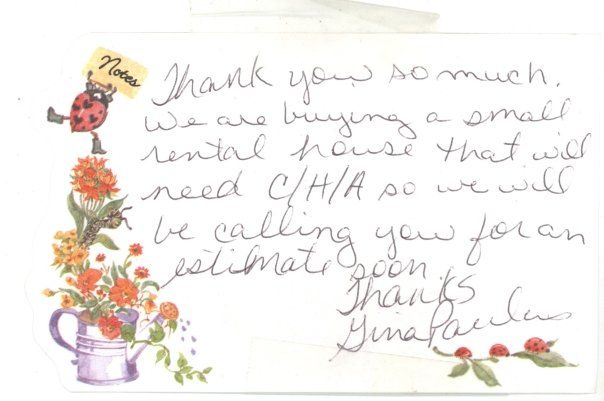 Notes
Thank you so much.
We are buying a small
rental house that will
need C/H/A so we will
be calling you for an
estimate soon.
Thanks
Gina Paulus